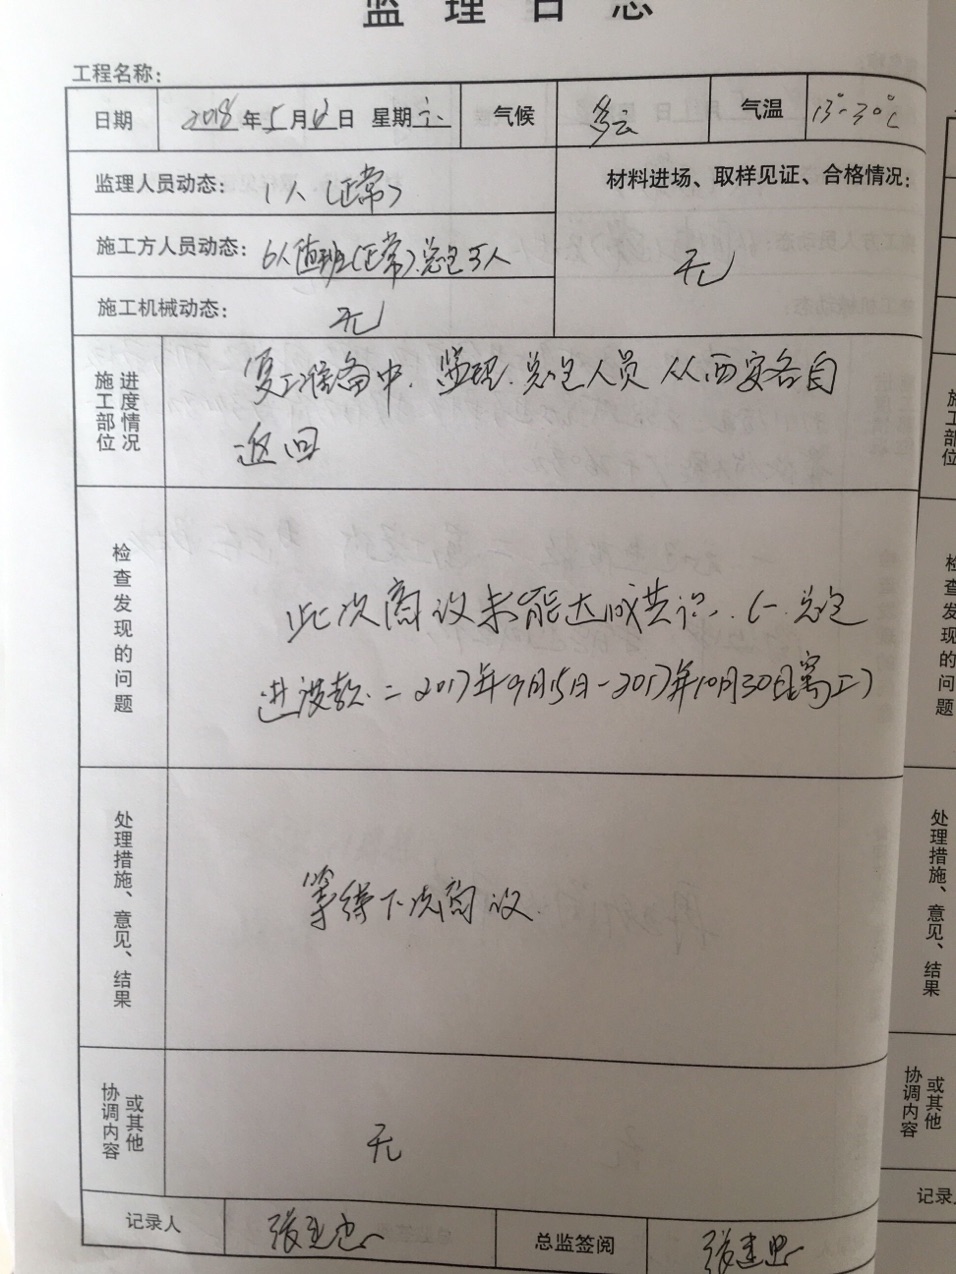 监理日志
工程名称:
日期 2018年5月12日 星期六 气候 多云 气温 13°-30℃
监理人员动态: 1人(正常) 材料进场、取样见证、合格情况:
施工方人员动态: 6人值班(正常).总包 人
无
施工机械动态: 无
施工部位 进度情况
复工准备中.监理.总包人员从西安各自
返回
检查发现的问题
此次商议未能达成共识.(一.总包
进度款.二2017年9月15日-2017年10月30日窝工)
处理措施、意见、结果
等待下次商议.
协调内容 或其他
无
记录人 张建忠 总监签阅 张建忠
施工部位
检查发现的问题
处理措施、意见、结果
协调内容 或其他
记录